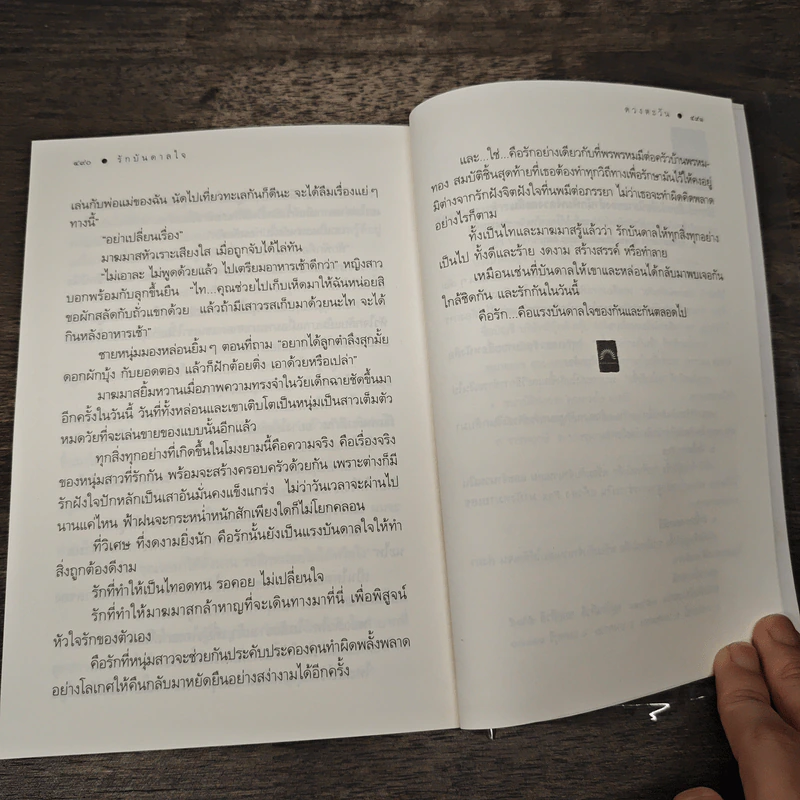 ๔๙๐ ● รักบันดาลใจ
เล่นกับพ่อแม่ของฉัน นัดไปเที่ยวทะเลกันก็ดีนะ จะได้ลืมเรื่องแย่ ๆ
ทางนี้”
“อย่าเปลี่ยนเรื่อง”
มาฆมาสหัวเราะเสียงใส เมื่อถูกจับได้ไล่ทัน
“ไม่เอาละ ไม่พูดด้วยแล้ว ไปเตรียมอาหารเช้าดีกว่า” หญิงสาว
บอกพร้อมกับลุกขึ้นยืน “ไท...คุณช่วยไปเก็บเห็ดมาให้ฉันหน่อยสิ
ขอผักสลัดกับถั่วแขกด้วย แล้วถ้ามีเสาวรสเก็บมาด้วยนะไท จะได้
กินหลังอาหารเช้า”
ชายหนุ่มมองหล่อนยิ้ม ๆ ตอนที่ถาม “อยากได้ลูกตำลึงสุกมั้ย
ดอกผักบุ้ง กับยอดตอง แล้วก็ฝักต้อยติ่ง เอาด้วยหรือเปล่า”
มาฆมาสยิ้มหวานเมื่อภาพความทรงจำในวัยเด็กฉายชัดขึ้นมา
อีกครั้งในวันนี้ วันที่ทั้งหล่อนและเขาเติบโตเป็นหนุ่มเป็นสาวเต็มตัว
หมดวัยที่จะเล่นขายของแบบนั้นอีกแล้ว
ทุกสิ่งทุกอย่างที่เกิดขึ้นในโมงยามนี้คือความจริง คือเรื่องจริง
ของหนุ่มสาวที่รักกัน พร้อมจะสร้างครอบครัวด้วยกัน เพราะต่างก็มี
รักฝังใจปักหลักเป็นเสาอันมั่นคงแข็งแกร่ง ไม่ว่าวันเวลาจะผ่านไป
นานแค่ไหน ฟ้าฝนจะกระหน่ำหนักสักเพียงใดก็ไม่โยกคลอน
ที่วิเศษ ที่งดงามยิ่งนัก คือรักนั้นยังเป็นแรงบันดาลใจให้ทำ
สิ่งถูกต้องดีงาม
รักที่ทำให้เป็นไทอดทน รอคอย ไม่เปลี่ยนใจ
รักที่ทำให้มาฆมาสกล้าหาญที่จะเดินทางมาที่นี่ เพื่อพิสูจน์
หัวใจรักของตัวเอง
คือรักที่หนุ่มสาวจะช่วยกันประคับประคองคนทำผิดพลั้งพลาด
อย่างโลเกศให้คืนกลับมาหยัดยืนอย่างสง่างามได้อีกครั้ง
ดวงตะวัน ● ๔๙๑
และ...ใช่...คือรักอย่างเดียวกับที่พรพรหมมีต่อครัวบ้านพรหม-
ทอง สมบัติชิ้นสุดท้ายที่เธอต้องทำทุกวิถีทางเพื่อรักษามันไว้ให้คงอยู่
มิต่างจากรักฝังจิตฝังใจที่นทมีต่อภรรยา ไม่ว่าเธอจะทำผิดคิดพลาด
อย่างไรก็ตาม
ทั้งเป็นไทและมาฆมาสรู้แล้วว่า รักบันดาลให้ทุกสิ่งทุกอย่าง
เป็นไป ทั้งดีและร้าย งดงาม สร้างสรรค์ หรือทำลาย
เหมือนเช่นที่บันดาลให้เขาและหล่อนได้กลับมาพบเจอกัน
ใกล้ชิดกัน และรักกันในวันนี้
คือรัก...คือแรงบันดาลใจของกันและกันตลอดไป